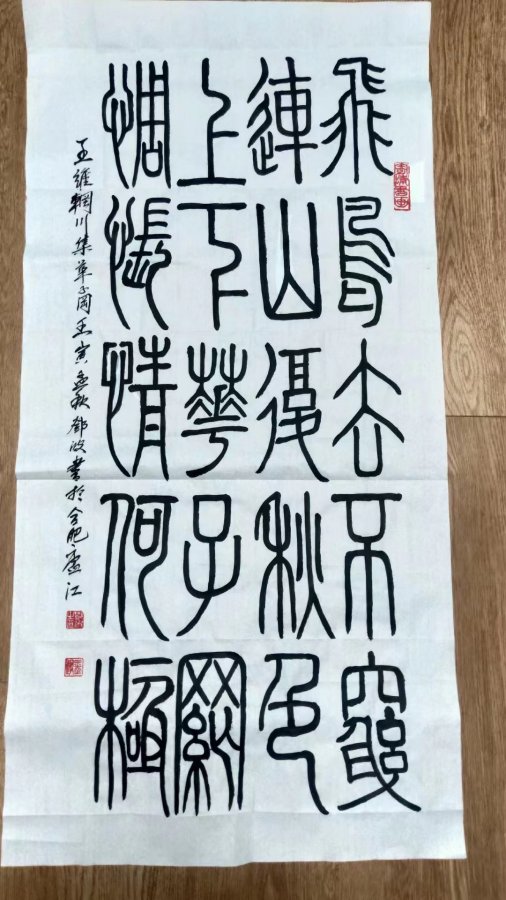 飛鳥去不窮
連山復秋色
上下華子綱
惆悵情何極
王維輞川集華子岡壬寅孟秋鄧書於合肥廬江